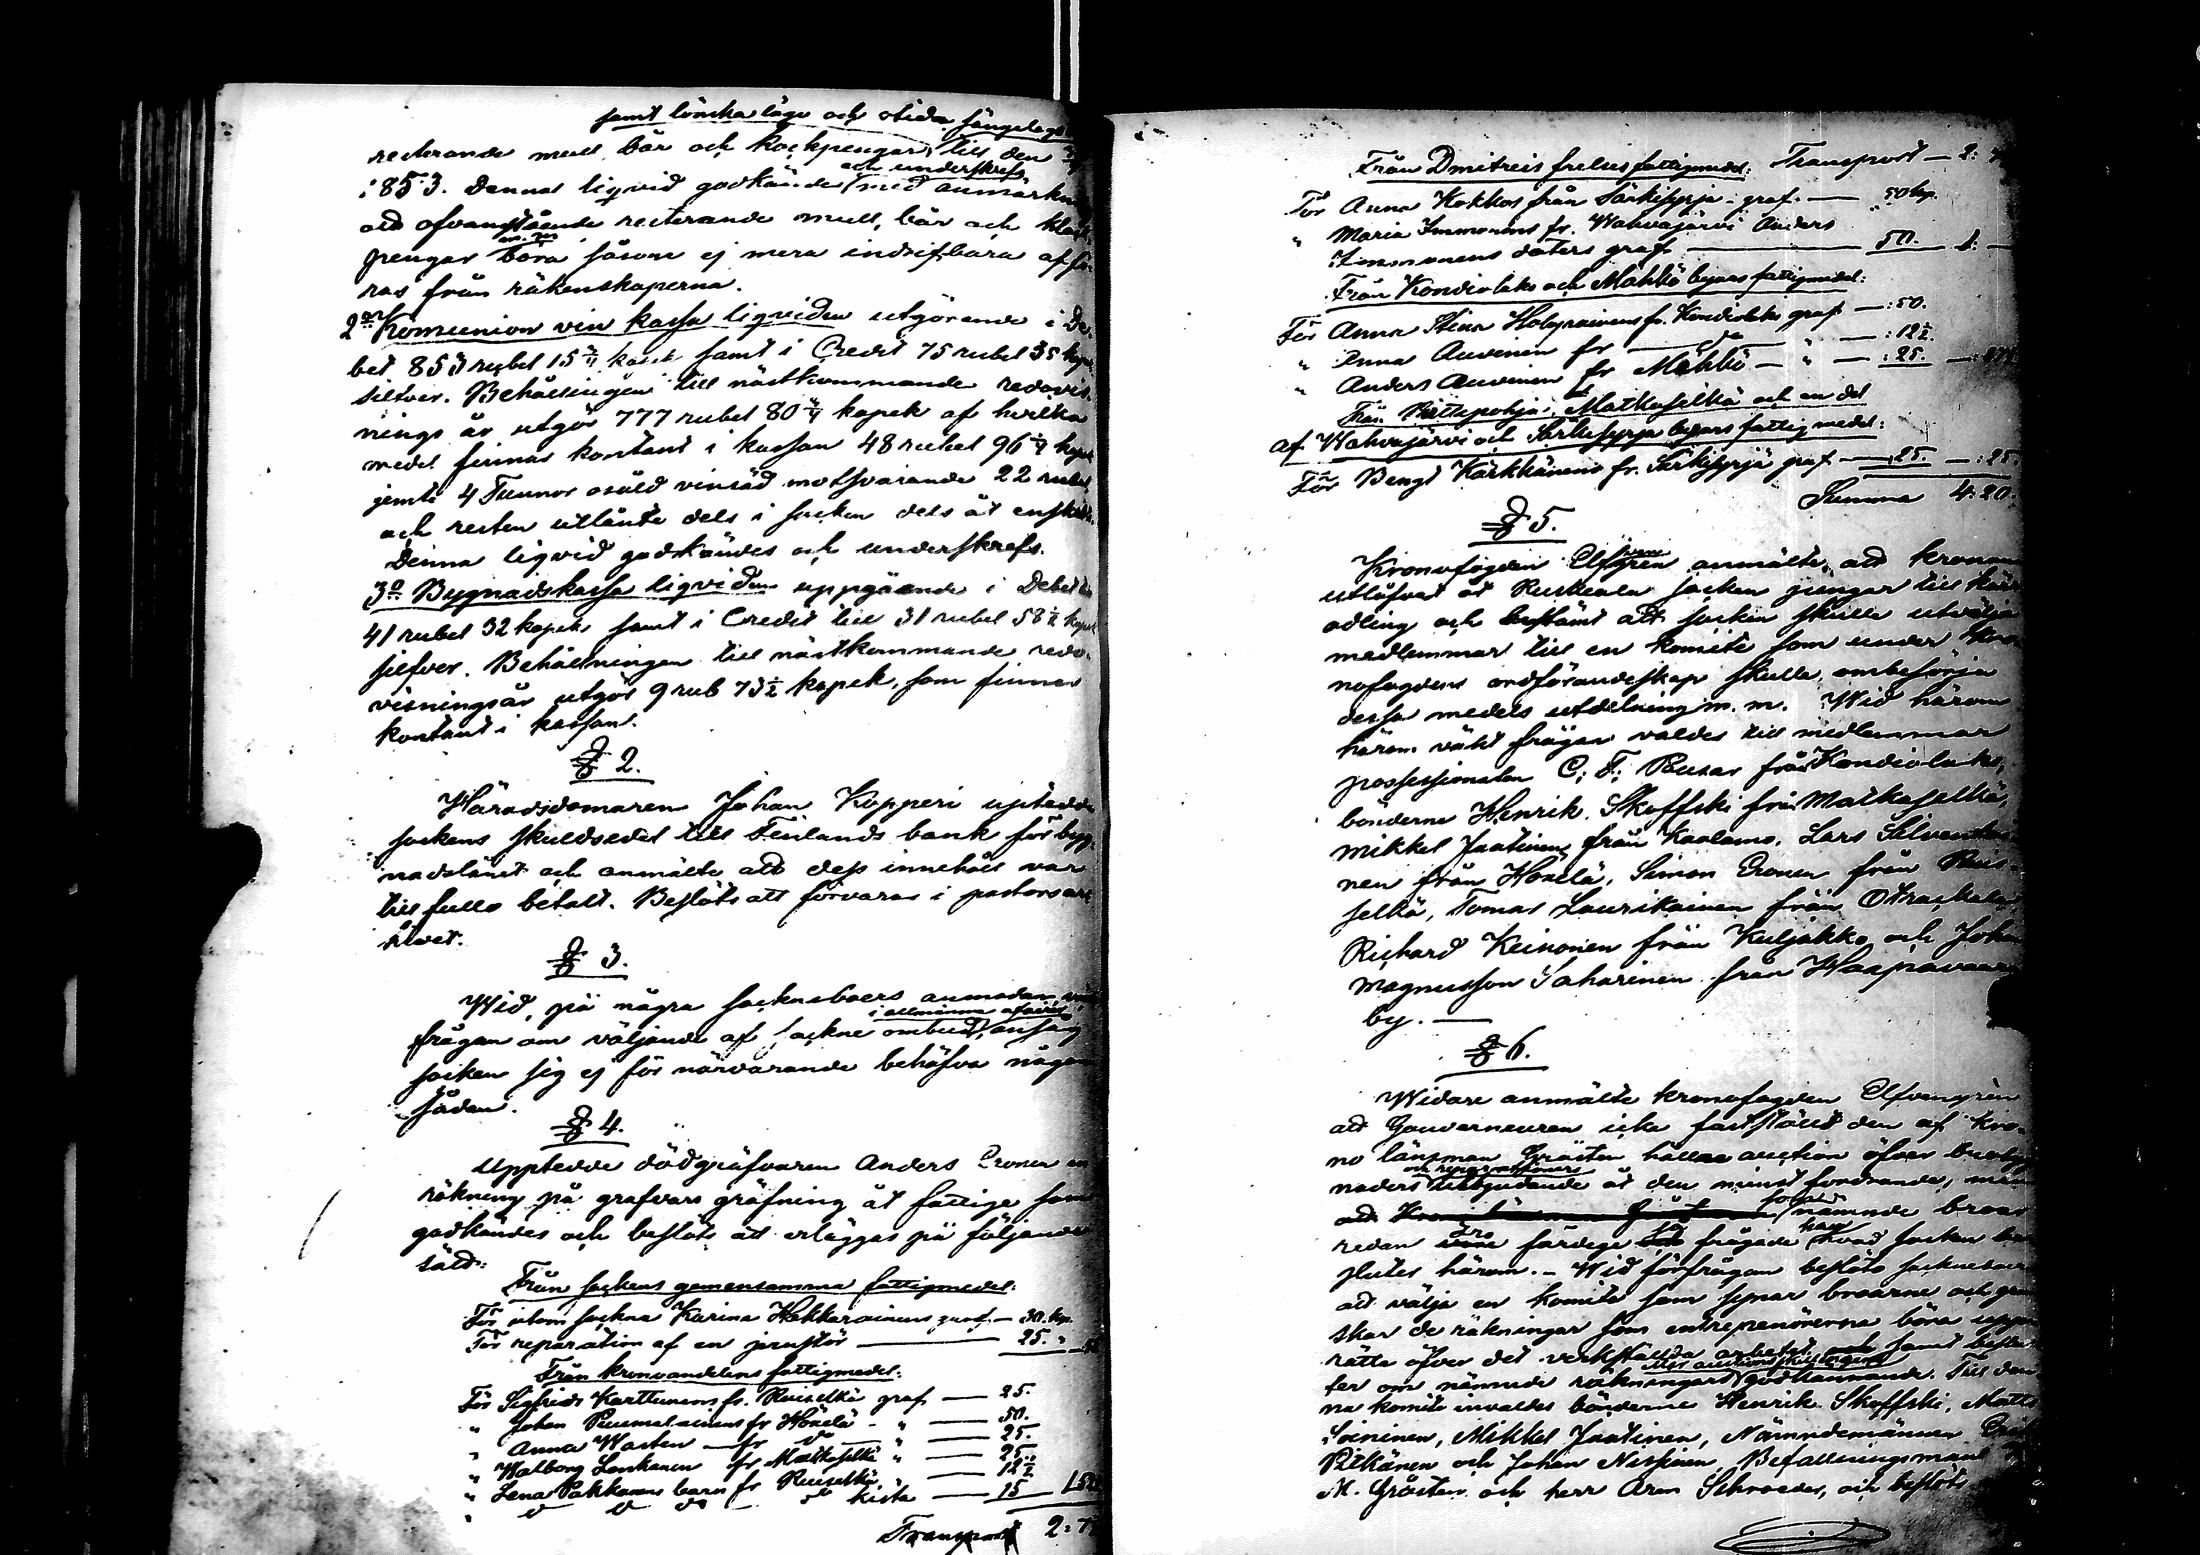 samt lönska läge och otida sängelags
resterande mull, bår och klockpengar till den
och underskrefs
1853. Dennas liqvid godkändes med anmärkn
att ofvanstående resterande mull, bår och klock
m. m.
pengar böra såsom ej mera indrifbara affö-
ras från räkenskaperna.
2o Komunion vin kassa liqviden utgörande i De-
bet 853 rubel 15 kopek samt i Credit 75 rubel 35 kopek
silfver. Behållningen till nästkommande redovis-
nings år utgör 777 rubel 80 kopek af hvilka
medel finnas kontant i kassan 48 rubel 96 kopek
jemte 4 Tunnor osåld vinsäd motsvarande 22 rubel
och resten utlånte dels i socken dels åt enskilde.
Denna liqvid godkändes och underskrefs.
3o Bygnadskassa liqviden uppgående i Debet till
41 rubel 32 kopek samt i Credit till 31 rubel 58 1/2 kopek
silfver. Behållningen till nästkommande redo-
visningsår utgör 9 rub 73 1/2 kopek, som finnes
kontant i kassan.
§ 2.
Häradsdomaren Johan Kopperi uptedde
sockens skuldsedel till Finlands bank för byg-
nadslånet och anmälte att dess innehåll var
till fullo betalt. Beslöts att förvaras i pastorsar-
kivet.
§ 3.
Wid, på några socknaboers anmodan,
i allmänna afairer
frågan om väljande af sockne ombud, ansåg
socken sig ej för närvarande behöfva någon
sådan.
§ 4.
Upptedde dödgräfvaren Anders Eronen en
räkning på grafvars gräfning åt fattige som
godkändes och beslöts att erläggas på följande
sätt:
Från sockens gemensamma fattigmedel:
För utom sockna Karina Hakkarainens graf — 30. kop.
För reparation af en jernstör — 25. "
Från kronoandelens fattigmedel:
För Sigfrids Karttunens fr. Ruisselkä graf — 25.
" Johan Pummalainens fr Höxelä " — 50.
" Anna Wasten — fr do " — 25.
" Walborg Lonkanen fr Matkaselkä " — 25.
" Lena Pakkanens barn fr Ruisselkä " — 12 1/2
" do do do do kista — 15
Transport 2: 7
Från Dmitreis frelses fattigmedel: Transport — 2: 7
För Anna Kokkos från Särkisyrjä graf — 50 kop.
" Maria Immonens fr. Wahvajärvi Anders
Immonens doters graf — 50. 1: —
Från Kondiolaks och Mähkö byars fattigmedel:
För Anna Stina Holopainens fr. Kondiolaks graf — :50.
" Anna Auvinen fr — do — " — :12 1/2.
" Anders Auvinen fr Mähkö — " — :25. — :87 1/2
Från Pirttipohja, Matkaselkä och en del
af Wahvajärvi och Särkisyrjä byars fattigmedel:
För Bengt Kärkkänens fr. Särkisyrjä graf — 25. — :25.
Summa 4: 20.
§ 5.
Kronofogden Elfvengren anmälte, att kronan
utlåfvat åt Ruskeala socken pengar till
odling och bestämt att socken skulle utvälja
medlemmar till en komité som under Kro-
nofogdens ordförandeskap skulle ombesörja
dessa medels utdelning m. m. Wid härom
härom väkt frågan valdes till medlemmar
possessionaten C. F. Pusar från Kondiolaks,
bönderne Henrik Skoffski från Matkaselkä,
Mikkel Jaatinen från Kaalamo, Lars Silventoi-
nen från Höxelä, Simon Eronen från Ruis-
selkä, Tomas Laurikainen från Otrackala
Richard Keinonen från Kuljakko och Johan
Magnusson Saharinen från Haapavaara
by. —
§ 6.
Widare anmälte kronofogden Elfvengren
att Gouverneuren icke fastställt den af Kro-
no länsman Gråsten hållne auction öfver brobyg-
och reparationers
naders utbjudande åt den minst fordrande, men
som nämnde broar
redan äro färdige så frågade han hvad socken be-
slutes härom. — Wid förfrågan beslöto sockneboer
att välja en komité som synar broarne och gran-
skar de räkningar som entreprenörerna böra upp-
rätta öfver det verkställda arbetet samt beslu-
ter om nämnde räkningars godkännande. Till den-
na komité invaldes bönderne Henrik Skoffski, Matts
Soininen, Mikkel Jaatinen, Nämndemännen
Pitkänen och Johan Nissinen, Befallningsman
M. Gråsten och herr Aron Schroeder, och beslöts